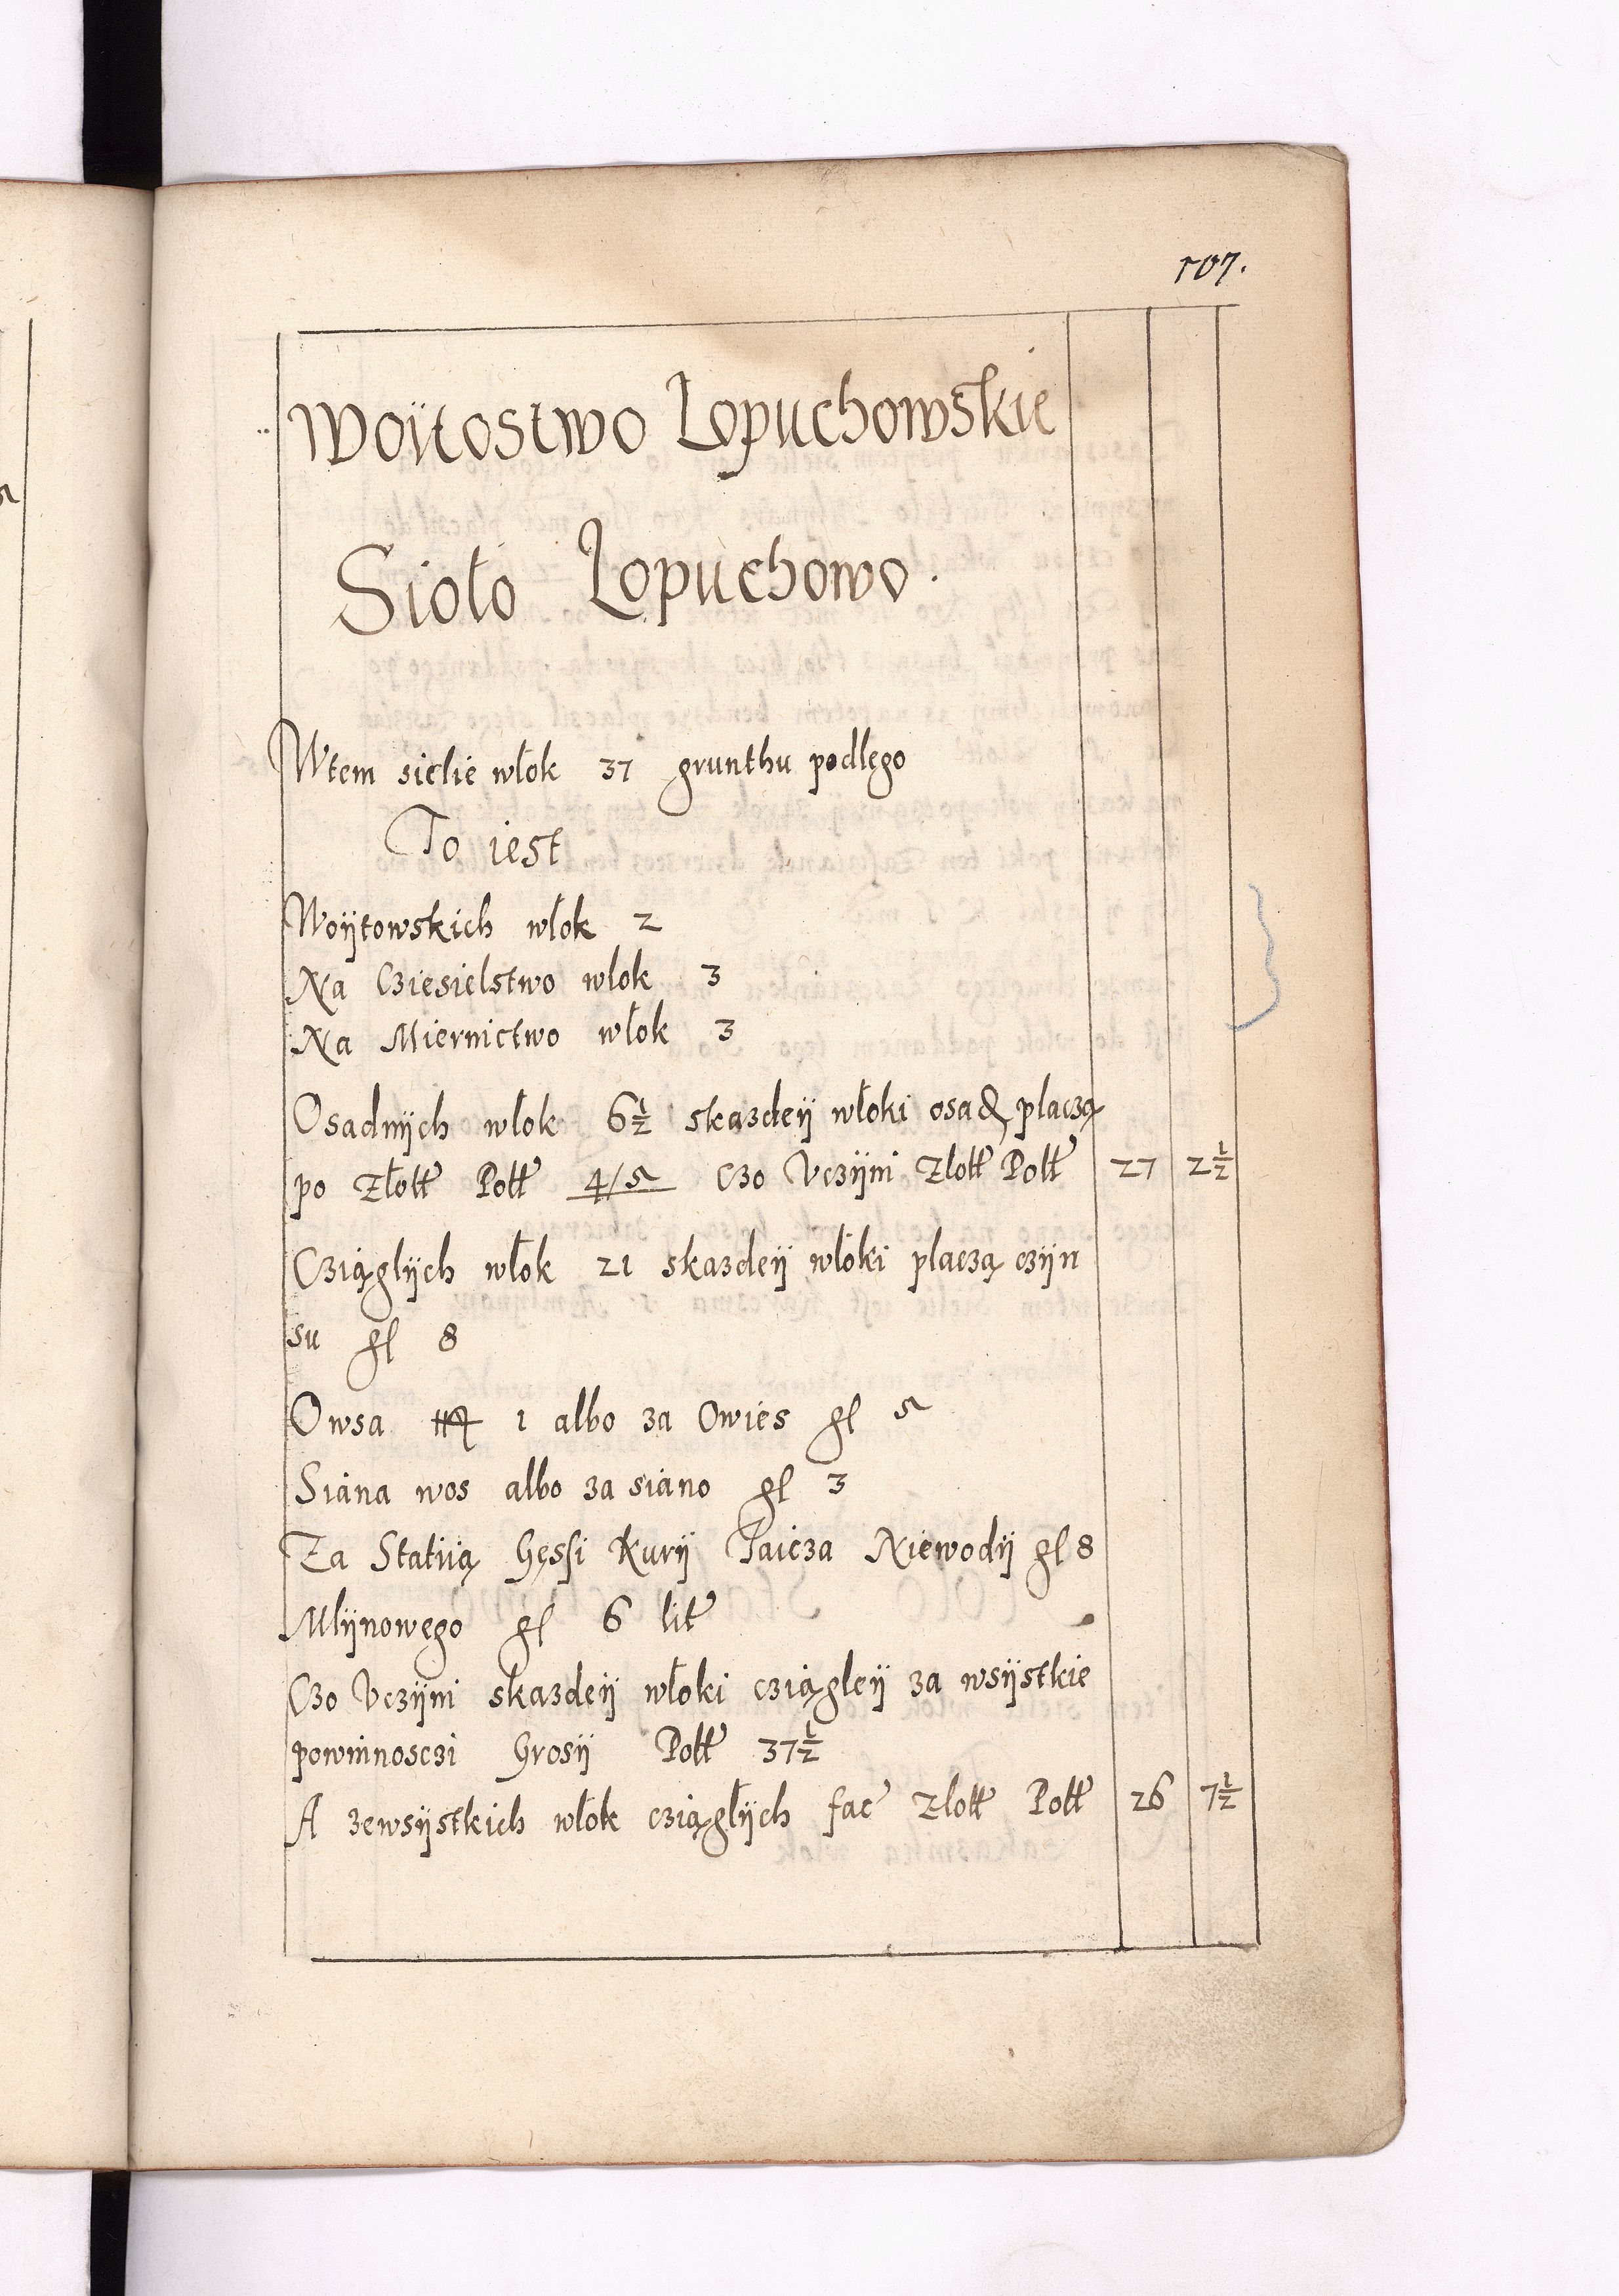 107.
Woÿtostwo Łopuchowskie
Sioło Łopuchowo.
Wtem sielie włok 37 grunthu podlego
To iest
Woÿtowskich włok 2
Na Cziesielstwo wlok 3
Na Miernictwo włok 3
Osadnÿch wlok 6½ skazdeÿ włoki płaczą
po Złott Pott 4/5 Czo Vczÿni Złott Pott 27 2½
Cziągłÿch włok 21 skazdeÿ włoki płaczą czÿn
su gl 8
Owsa 1 albo za Owies gl 5
Siana wos albo za siano gl 3
Za Statiią Gęssi Kurÿ Iaicza Niewodÿ gl 8
Mlÿnowego gl 6 lit
Czo Vczÿni skazdeÿ włoki cziągleÿ za wsÿstkie
powinnosczi Grosÿ Pott 37½
A zewsÿstkich włok cziągłÿch fac Złott Pott 26 7½